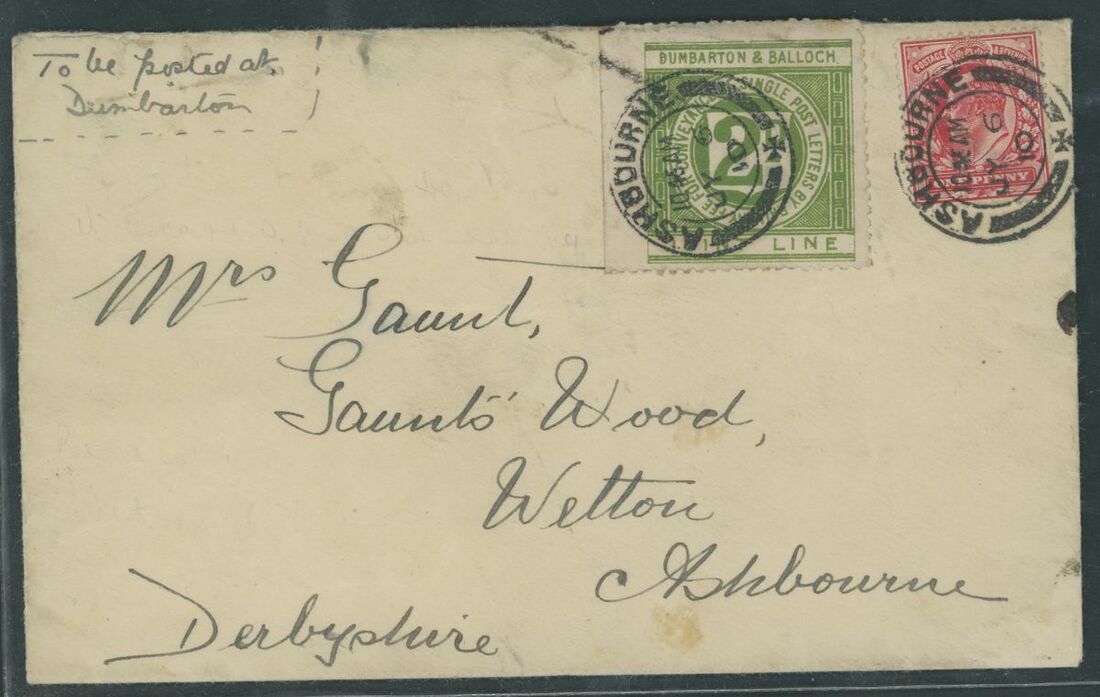 To be posted at
Dumbarton
DUMBARTON & BALLOCH
SINGLE POST LETTERS BY
FEE FOR CONVEYANCE
2
LINE
ASHBOURNE
AM
ASHBOURNE
AM
POSTAGE
PENNY
Mrs Gaunt,
Gaunts' Wood,
Wetton
Ashbourne
Derbyshire